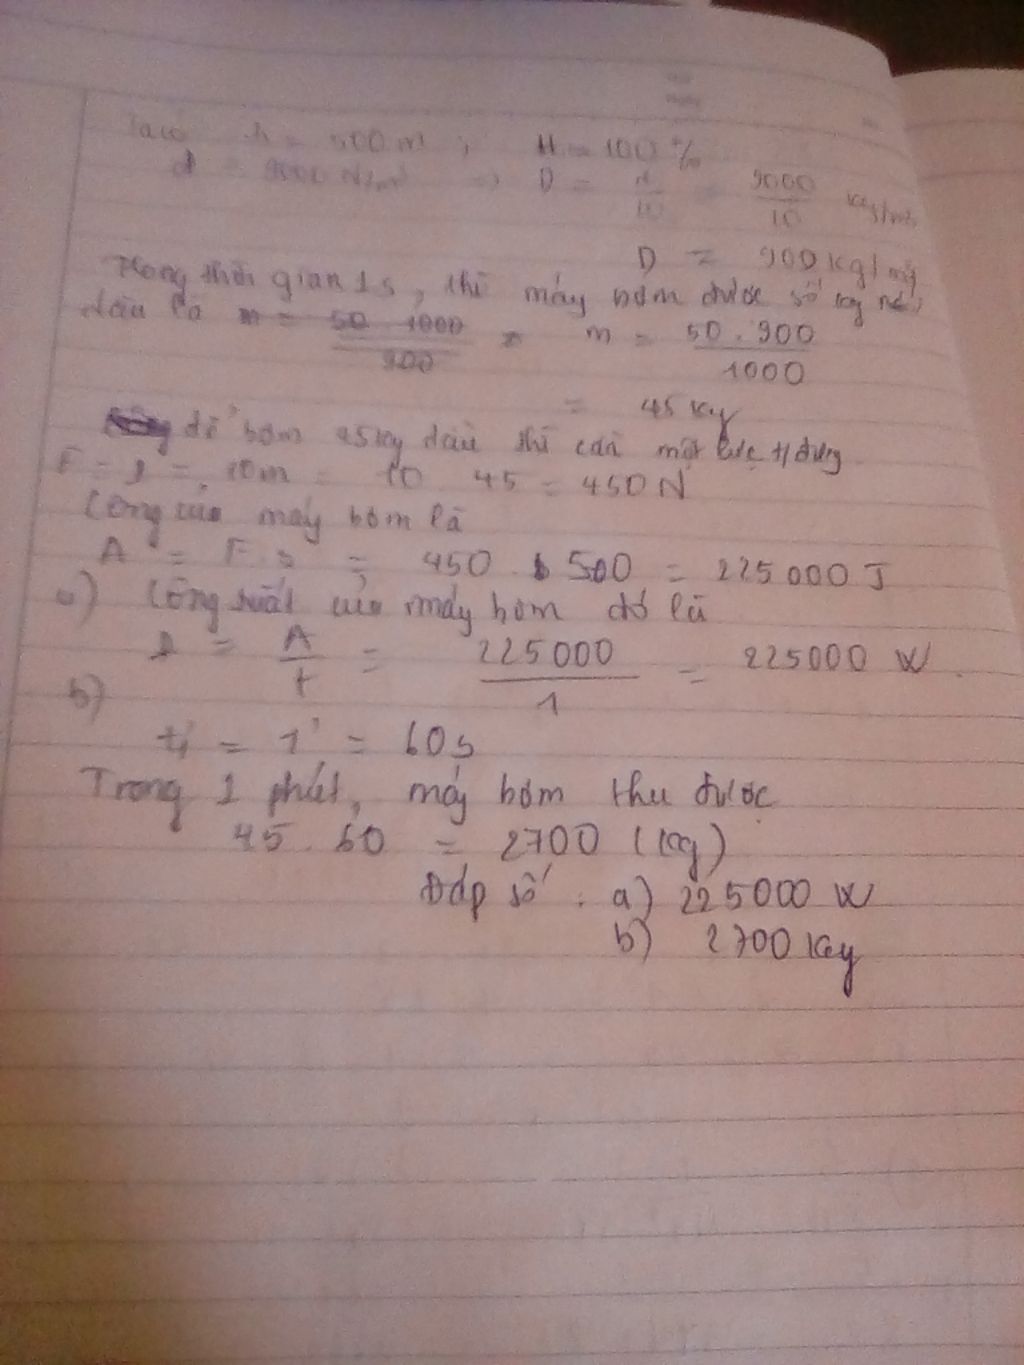 h = 500 m ; H = 100 %
d = 9000 N/m³ => D = d/10 = 9000/10 kg/m³
D = 900 kg/m³
Trong thời gian 1s, thì máy bơm được số kg
dầu là m = 50 1000/900 = m = 50 . 900/1000
= 45 kg
để bơm 45kg dầu thì cần một lực t/dụng
F = P = 10m = 10 45 = 450 N
Công của máy bơm là
A = F.s = 450 . 500 = 225 000 J
a) Công suất của máy bơm đó là
P = A/t = 225 000/1 = 225000 W
b)
t₁ = 1' = 60s
Trong 1 phút, máy bơm thu được
45 . 60 = 2700 (kg)
Đáp số : a) 225000 W
b) 2700 kg